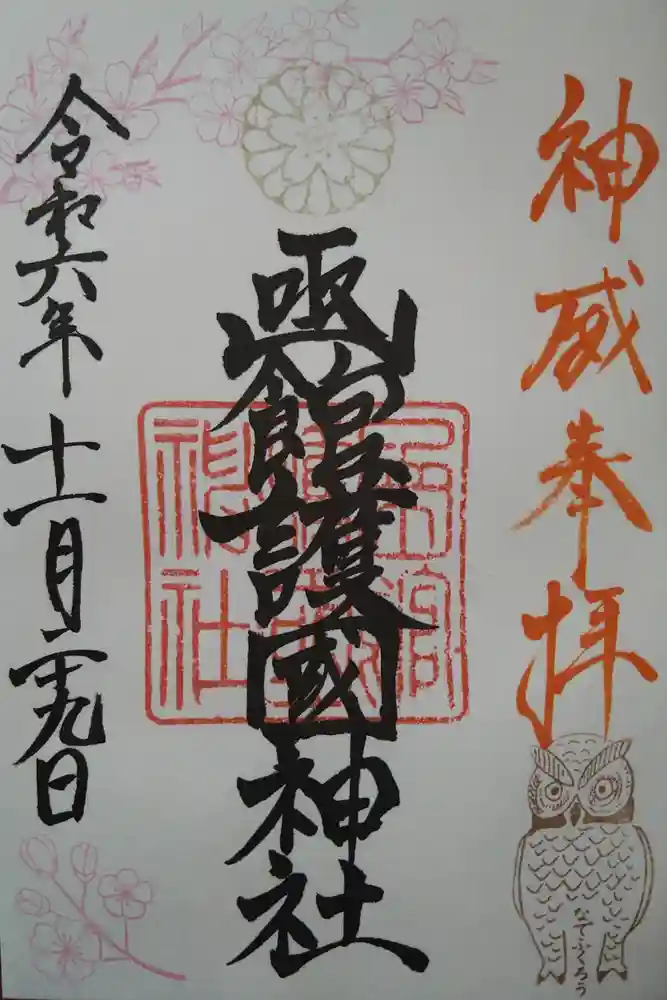 神威奉拝
凾館護國神社
令和六年十一月二十九日
神社
なでふくろう